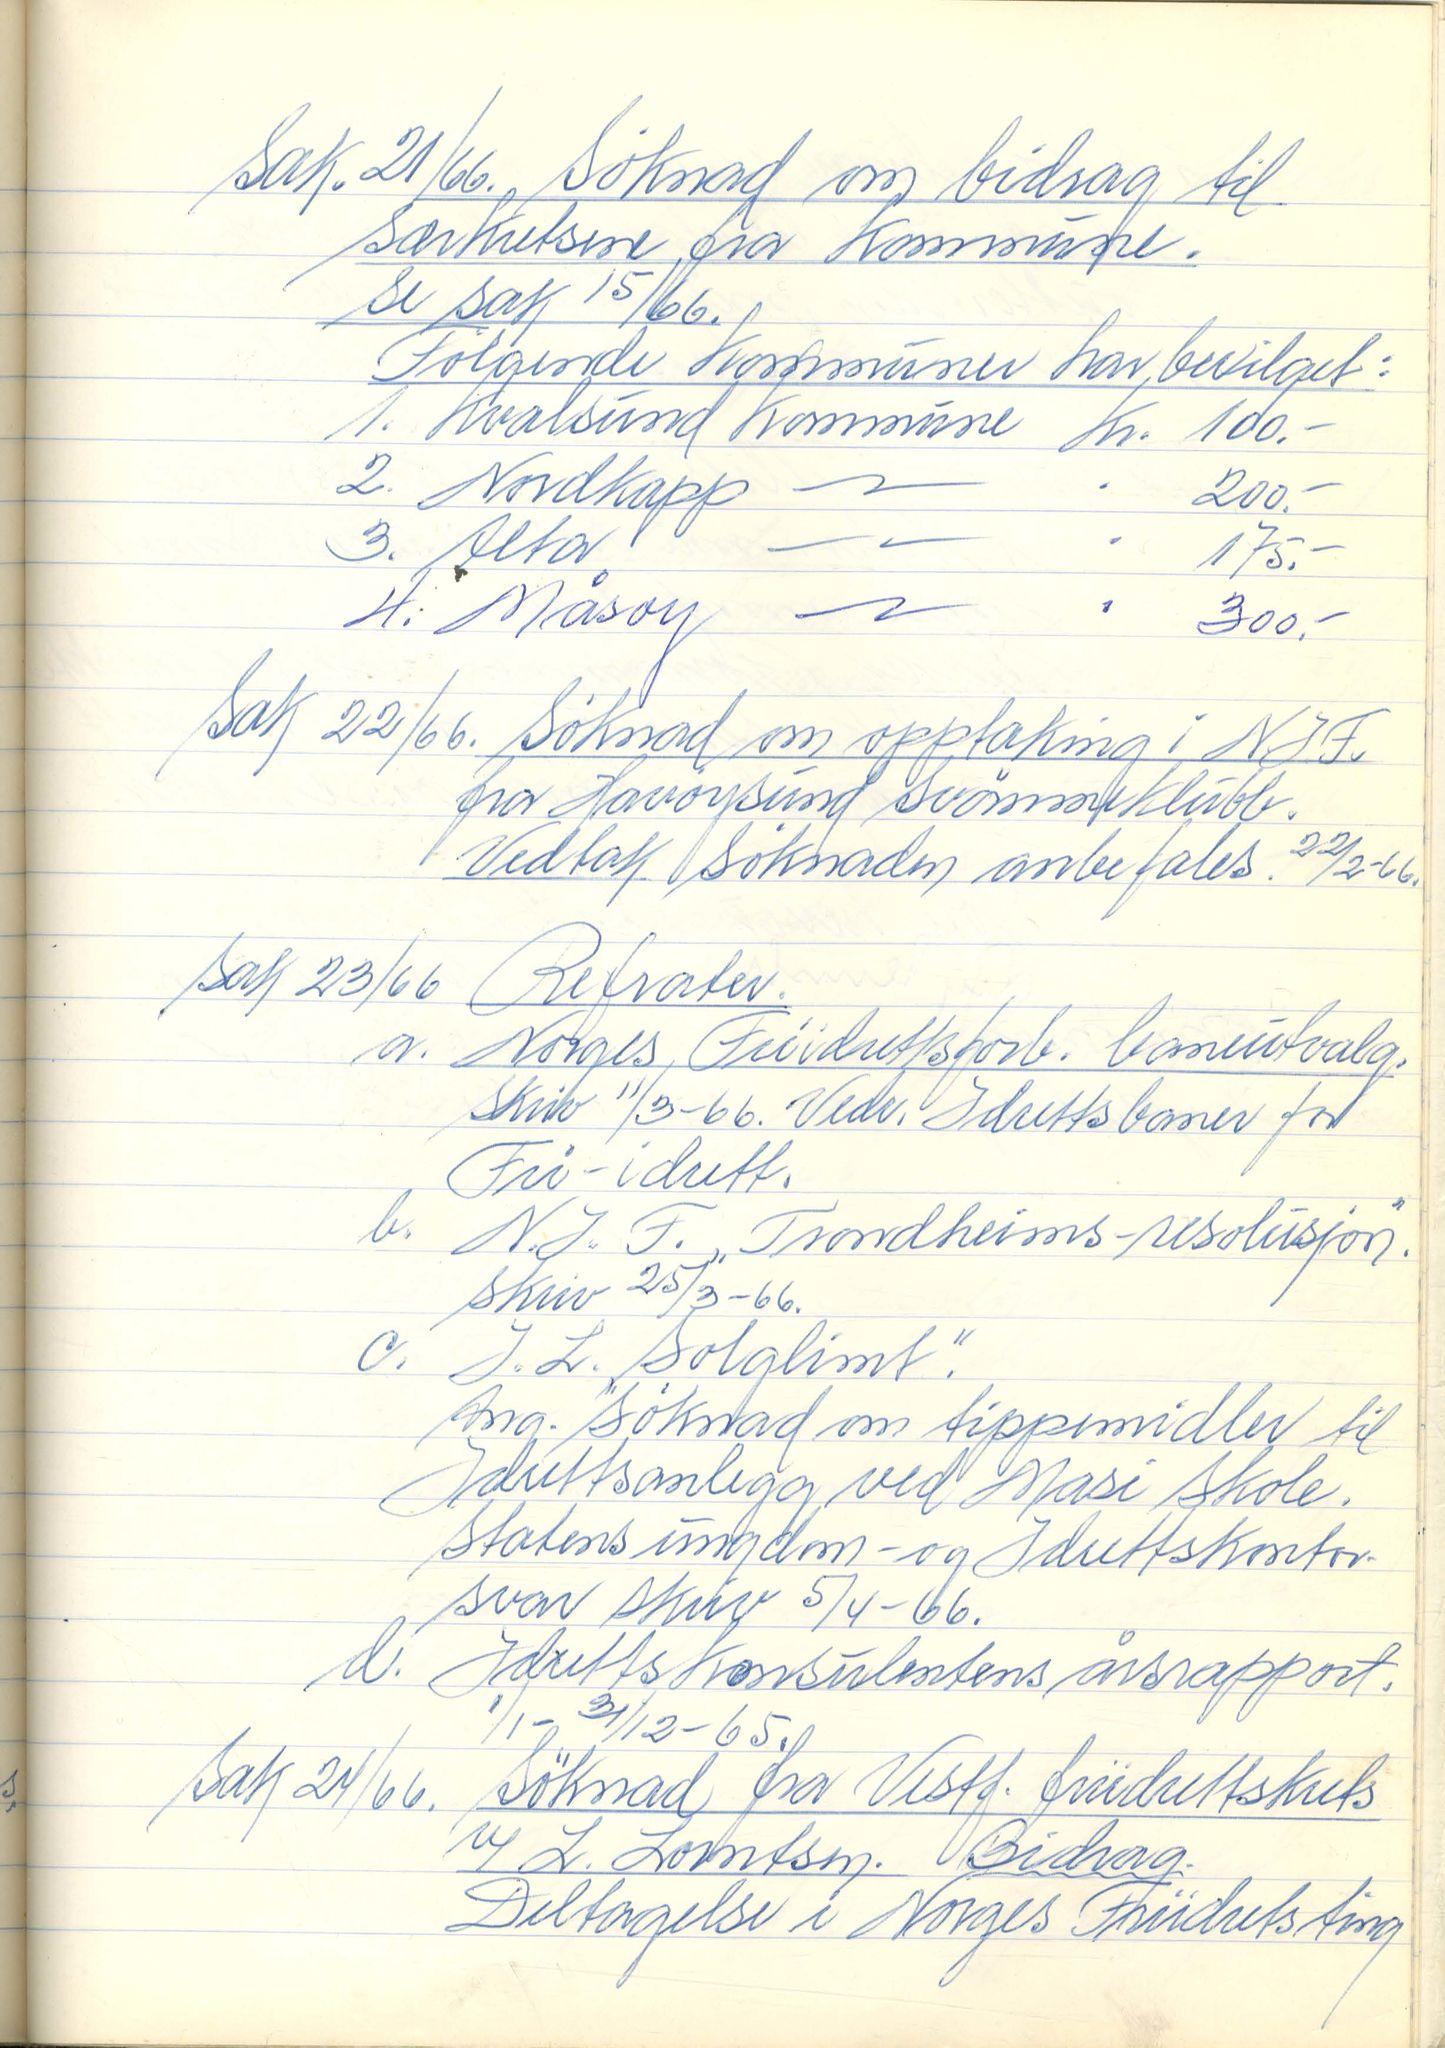 Sak. 21/66. Söknad om bidrag til
Særkretsene fra Kommune.
Se sak 15/66.
Følgende Kommuner har bevilget:
1. Kvalsund Kommune Kr. 100.-
2. Nordkapp —〃— " 200.-
3. Alta —〃— " 175.-
4. Måsøy —〃— " 300.-
Sak 22/66. Söknad om opptaking i N.I.F.
fra Havöysund Svömmeklubb.
Vedtak Söknaden anbefales. 22/2-66.
Sak 23/66 Refrater.
a. Norges Friidrettsforb. baneutvalg.
Skriv 11/3-66. Vedr. Idrettsbaner for
Fri-idrett.
b. N.I.F. „Trondheims-resolusjon".
Skriv 25/3-66.
c. I.L. „Solglimt".
Ang. Söknad om tippemidler til
Idrettsanlegg ved Masi Skole.
Statens ungdom-og Idrettskontor-
svar skriv 5/4-66.
d. Idrettskonsulentens årsrapport.
1/1-31/12-65.
Sak 24/66. Söknad fra Vestf. friidrettskrets
v/ L. Lorntsen. Bidrag.
Deltagelse i Norges Friidrets ting
s.